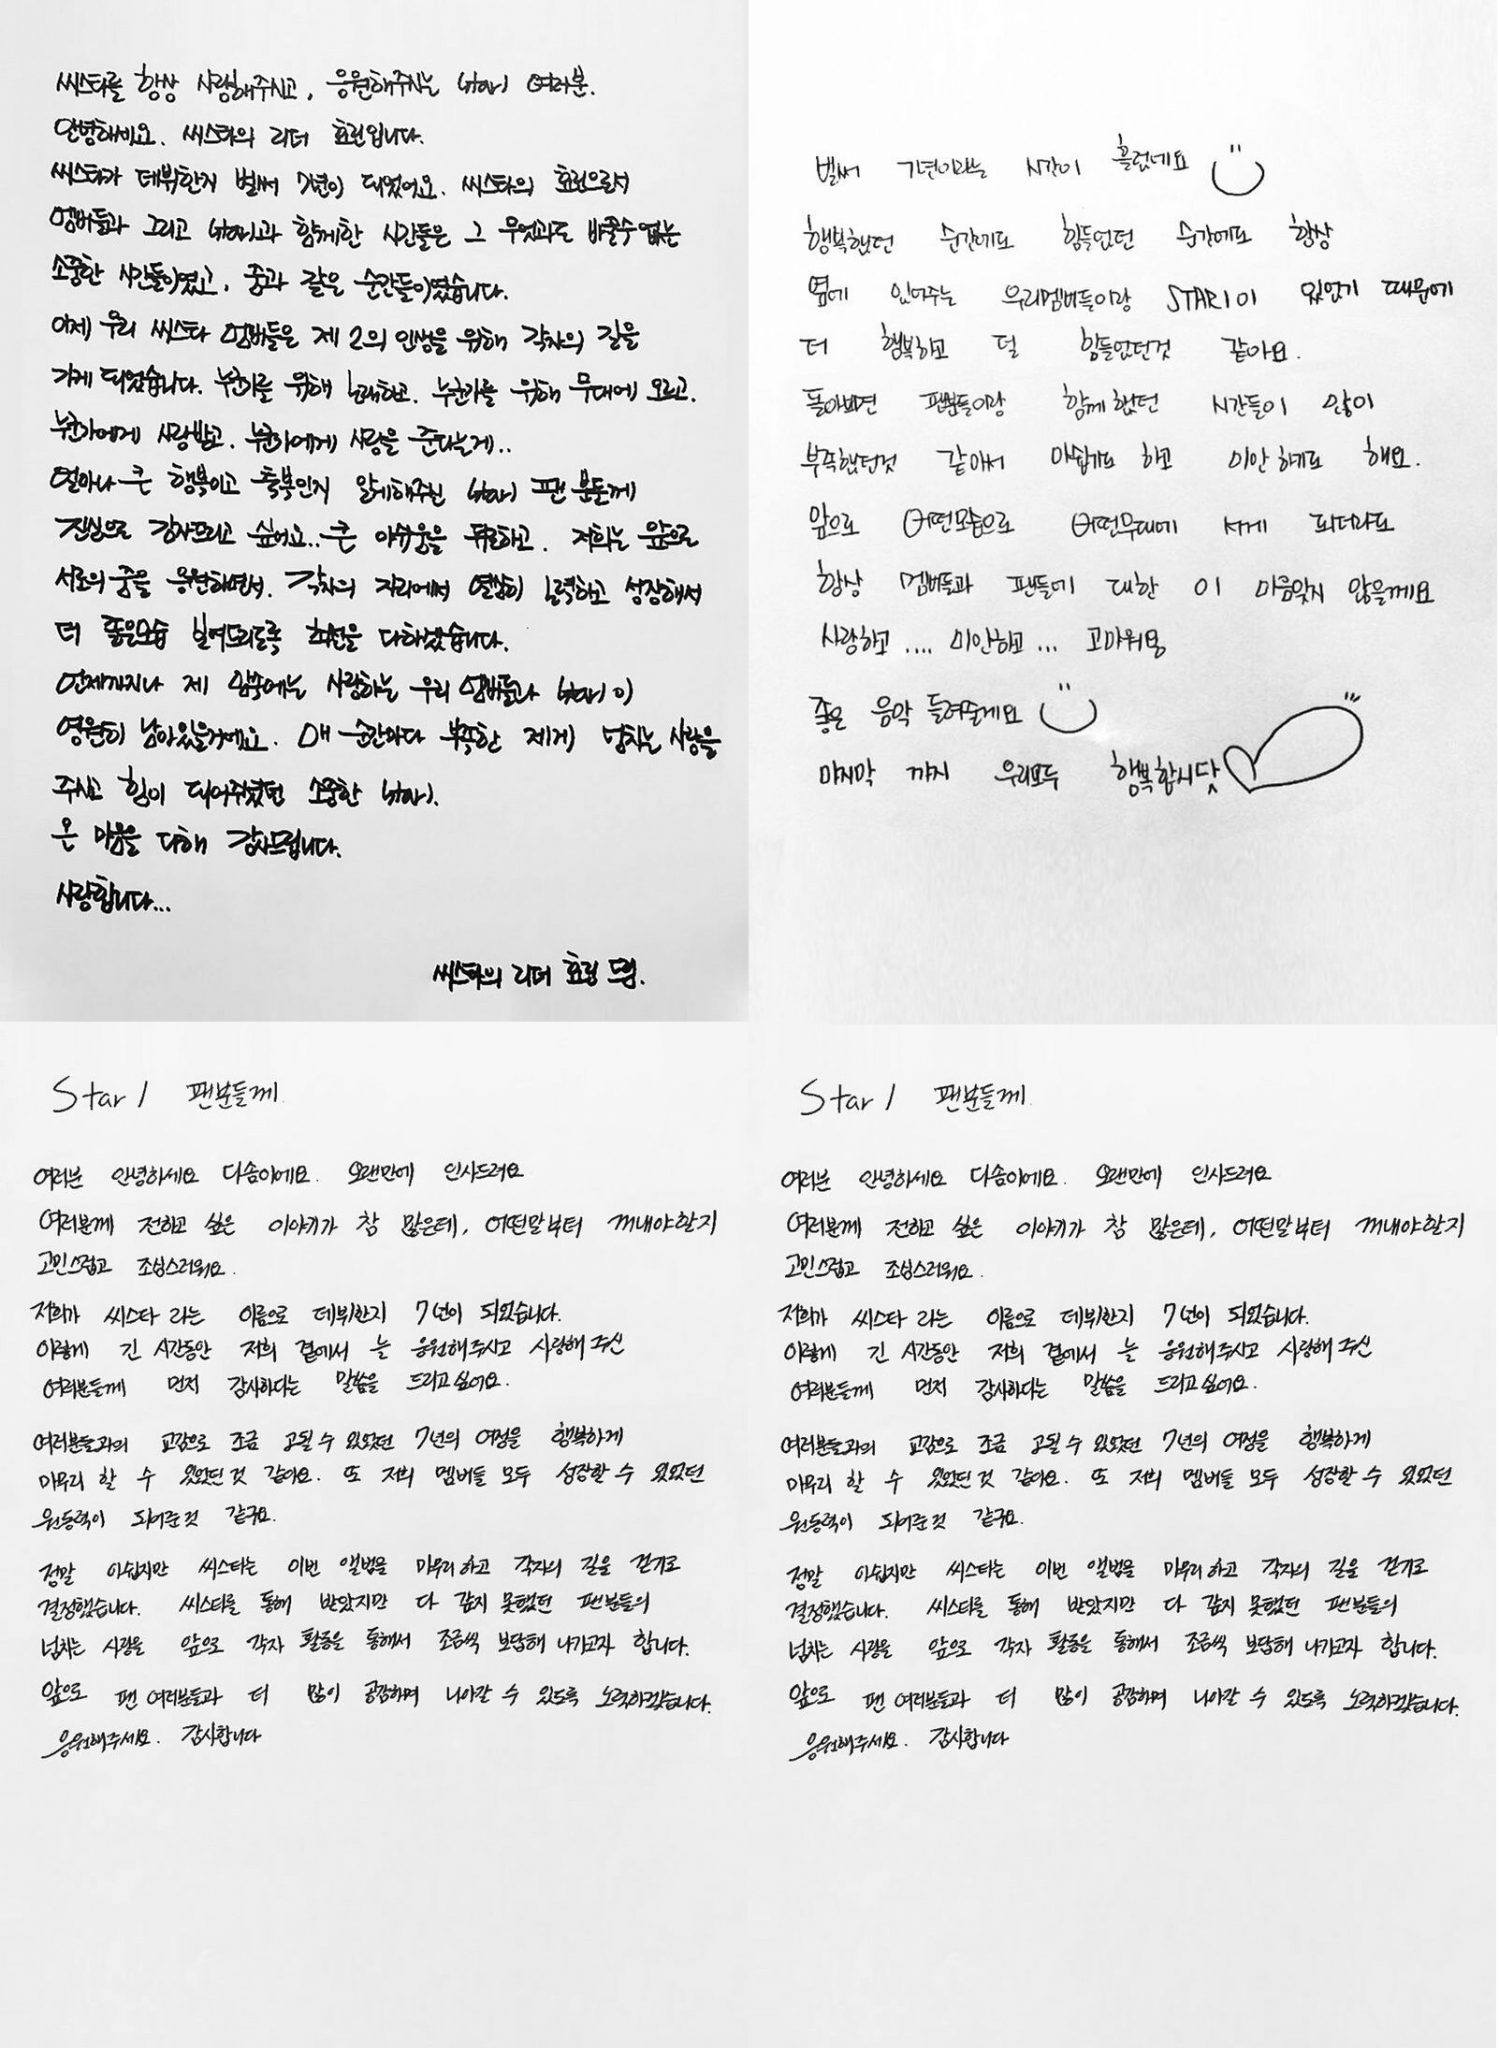 씨스타를 항상 사랑해주시고, 응원해주시는 star1 여러분.
안녕하세요. 씨스타의 리더 효린입니다.
씨스타가 데뷔한지 벌써 7년이 되었어요. 씨스타의 효린으로서
멤버들과 그리고 star1과 함께한 시간들은 그 무엇과도 바꿀수 없는
소중한 시간들이였고, 꿈과 같은 순간들이였습니다.
이제 우리 씨스타 멤버들은 제 2의 인생을 위해 각자의 길을
가게 되었습니다. 누군가를 위해 노래하고. 누군가를 위해 무대에 오르고.
누군가에게 사랑받고. 누군가에게 사랑을 준다는게..
얼마나 큰 행복이고 축복인지 알게해주신 star1 팬 분들께
진심으로 감사드리고 싶어요.. 큰 아쉬움을 뒤로하고. 저희는 앞으로
서로의 꿈을 응원하면서. 각자의 자리에서 열심히 노력하고 성장해서
더 좋은모습 보여드리도록 최선을 다하겠습니다.
언제까지나 제 맘속에는 사랑하는 우리 멤버들과 star1이
영원히 남아있을거에요. 매 순간마다 부족한 제게 넘치는 사랑을
주시고 힘이 되어주셨던 소중한 star1.
온 마음을 다해 감사드립니다.
사랑합니다...
씨스타의 리더 효린 드림.
벌써 7년이라는 시간이 흘렀네요
행복했던 순간에도 힘들었던 순간에도 항상
옆에 있어주는 우리멤버들이랑 STAR1이 있었기 때문에
더 행복하고 덜 힘들었던것 같아요.
돌아보면 팬분들이랑 함께했던 시간들이 많이
부족했던것 같아서 아쉽기도 하고 미안하기도 해요.
앞으로 어떤모습으로 어떤무대에 서게 되더라도
항상 멤버들과 팬들에 대한 이 마음잊지 않을께요
사랑하고 .... 미안하고 ... 고마워요
좋은 음악 들려줄게요
마지막 까지 우리모두 행복합시닷
Star1 팬분들께
여러분 안녕하세요 다솜이에요. 오랜만에 인사드려요
여러분께 전하고 싶은 이야기가 참 많은데, 어떤말부터 꺼내야할지
고민스럽고 조심스러워요.
저희가 씨스타 라는 이름으로 데뷔한지 7년이 되었습니다.
이렇게 긴 시간동안 저희 곁에서 늘 응원해주시고 사랑해 주신
여러분들께 먼저 감사하다는 말씀을 드리고싶어요.
여러분들과의 교감으로 조금 공될 수 있었던 7년의 여정을 행복하게
마무리 할 수 있었던 것 같아요. 또 저희 멤버들 모두 성장할 수 있었던
원동력이 되어준것 같구요.
정말 아쉽지만 씨스타는 이번 앨범을 마무리 하고 각자의 길을 걷기로
결정했습니다. 씨스타를 통해 받았지만 다 갚지 못했던 팬분들의
넘치는 사랑을 앞으로 각자 활동을 통해서 조금씩 보답해 나가고자 합니다.
앞으로 팬 여러분들과 더 많이 공감하며 나아갈 수 있도록 노력하겠습니다.
응원해주세요. 감사합니다
Star1 팬분들께
여러분 안녕하세요 다솜이에요. 오랜만에 인사드려요
여러분께 전하고 싶은 이야기가 참 많은데, 어떤말부터 꺼내야할지
고민스럽고 조심스러워요.
저희가 씨스타 라는 이름으로 데뷔한지 7년이 되었습니다.
이렇게 긴 시간동안 저희 곁에서 늘 응원해주시고 사랑해 주신
여러분들께 먼저 감사하다는 말씀을 드리고싶어요.
여러분들과의 교감으로 조금 공될 수 있었던 7년의 여정을 행복하게
마무리 할 수 있었던 것 같아요. 또 저희 멤버들 모두 성장할 수 있었던
원동력이 되어준것 같구요.
정말 아쉽지만 씨스타는 이번 앨범을 마무리 하고 각자의 길을 걷기로
결정했습니다. 씨스타를 통해 받았지만 다 갚지 못했던 팬분들의
넘치는 사랑을 앞으로 각자 활동을 통해서 조금씩 보답해 나가고자 합니다.
앞으로 팬 여러분들과 더 많이 공감하며 나아갈 수 있도록 노력하겠습니다.
응원해주세요. 감사합니다